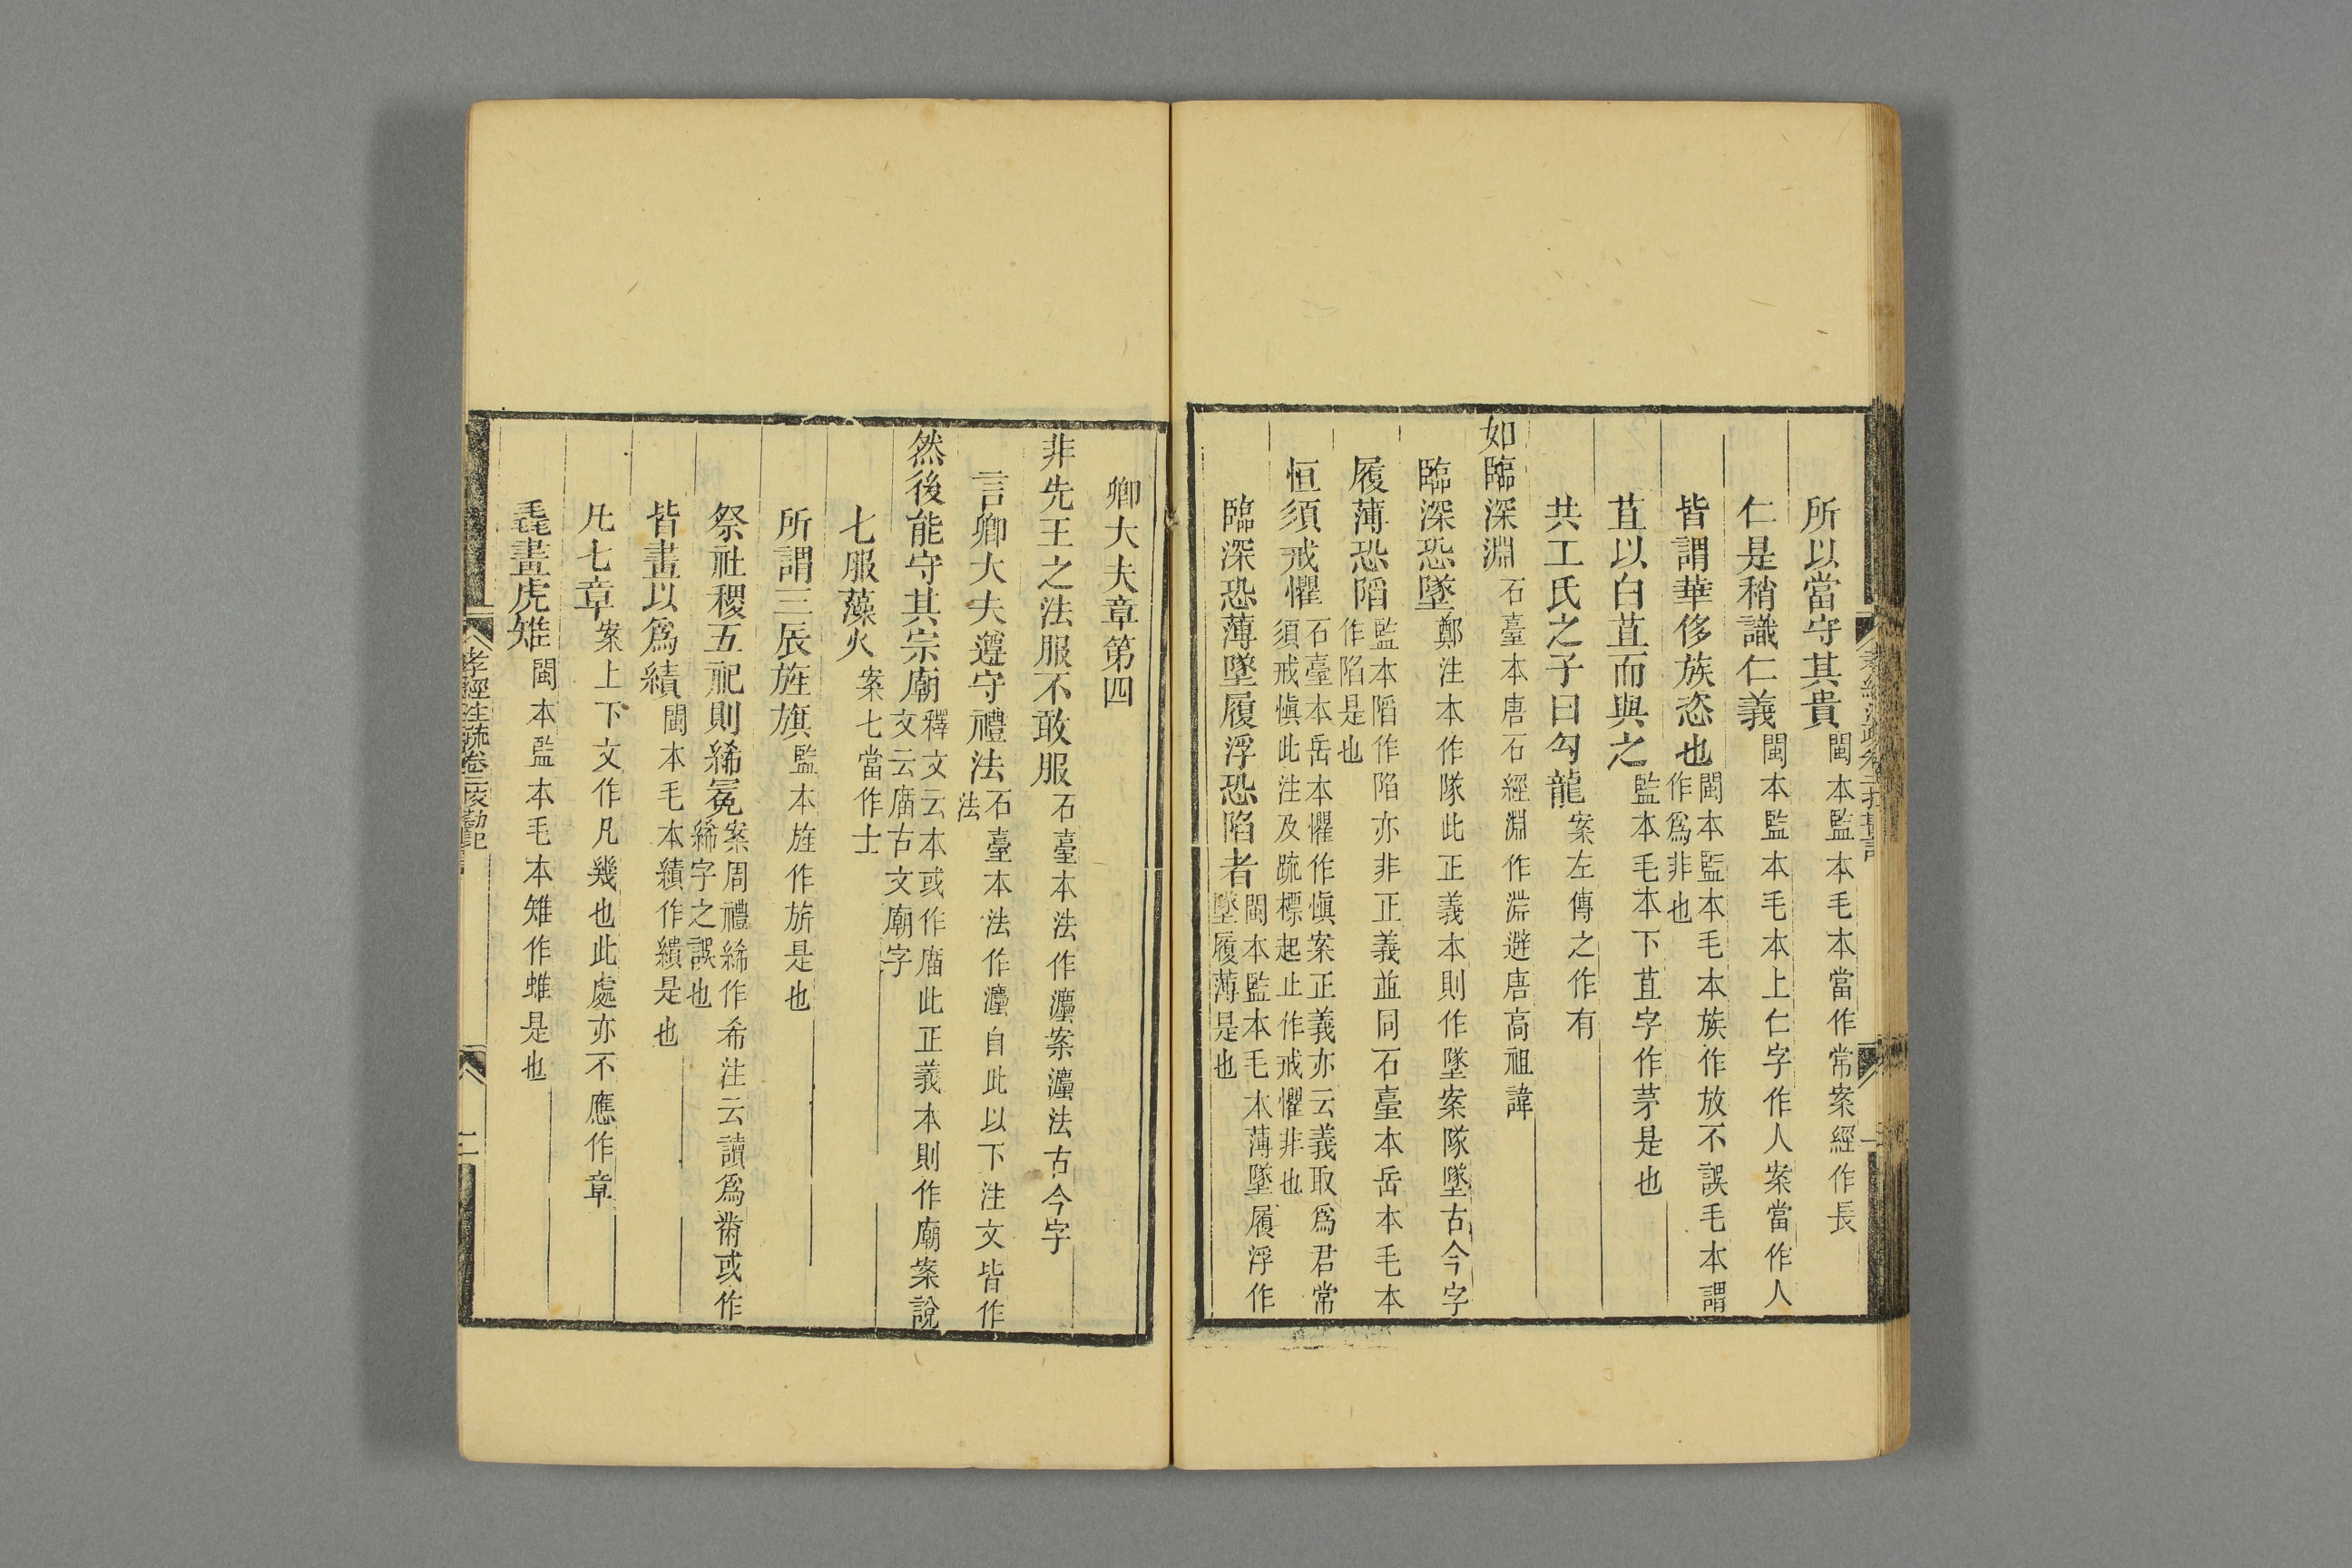 所以當守其貴閩本監本毛本當作常案經作長
仁是稍識仁義閩本監本毛本上仁字作人案當作人
皆謂華侈族恣也閩本監本毛本族作放不誤毛本謂
作爲非也
苴以白苴而與之監本毛本下苴字作茅是也
共工氏之子曰勾龍案左傳之作有
如臨深淵石臺本唐石經淵作淵避唐高祖諱
臨深恐墜鄭注本作隊此正義本則作墜案隊墜古今字
履薄恐䧟監本䧟作陷亦非正義並同石臺本岳本毛本
作陷是也
恒須戒懼石臺本岳本懼作愼案正義亦云義取爲君常
須戒愼此注及疏標起止作戒懼非也
臨深恐薄墜履浮恐陷者閩本監本毛本薄墜履浮作
墜履薄是也
卿大夫章第四
非先王之法服不敢服石臺本法作灋案灋法古今字
言卿大夫遵守禮法石臺本法作灋自此以下注文皆作
法
然後能守其宗廟釋文云本或作庿此正義本則作廟案說
文云庿古文廟字
七服藻火案七當作士
所謂三辰旌旗監本旌作旂是也
祭社稷五祀則絺冕案周禮絺作希注云讀爲黹或作
絺字之誤也
皆畫以爲績閩本毛本績作繢是也
凡七章案上下文作凡幾也此處亦不應作章
毳畫虎雉閩本監本毛本雉作蜼是也
孝經注疏卷二挍勘記
二